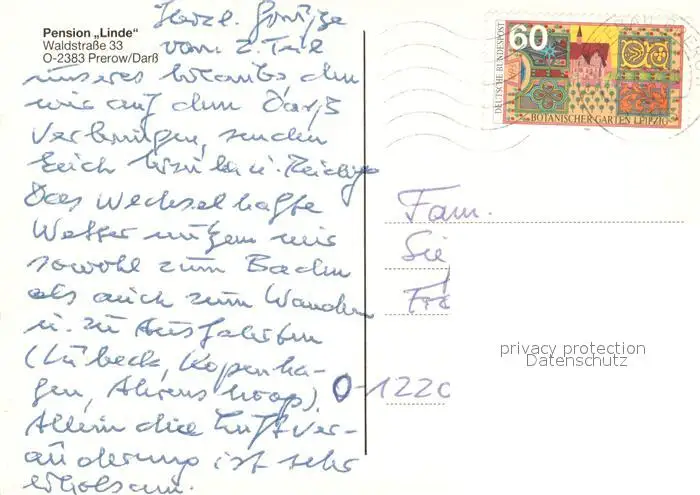 Pension „Linde“
Waldstraße 33
O-2383 Prerow/Darß
Herzl. Grüße
vom 2. Teil
unseres Urlaubs den
wir auf dem Darß
verbringen, senden
Euch u.
Das wechselhafte
Wetter nutzen wir
sowohl zum Baden
als auch zum Wandern
u. zu Ausfahrten
(Lübeck, Kopenha-
gen, Ahrenshoop).
Allein die Luftver-
änderung ist sehr
erholsam.
DEUTSCHE BUNDESPOST
60
BOTANISCHER GARTEN LEIPZIG
Fam.
Sie
Frä
O-1220
privacy protection
Datenschutz